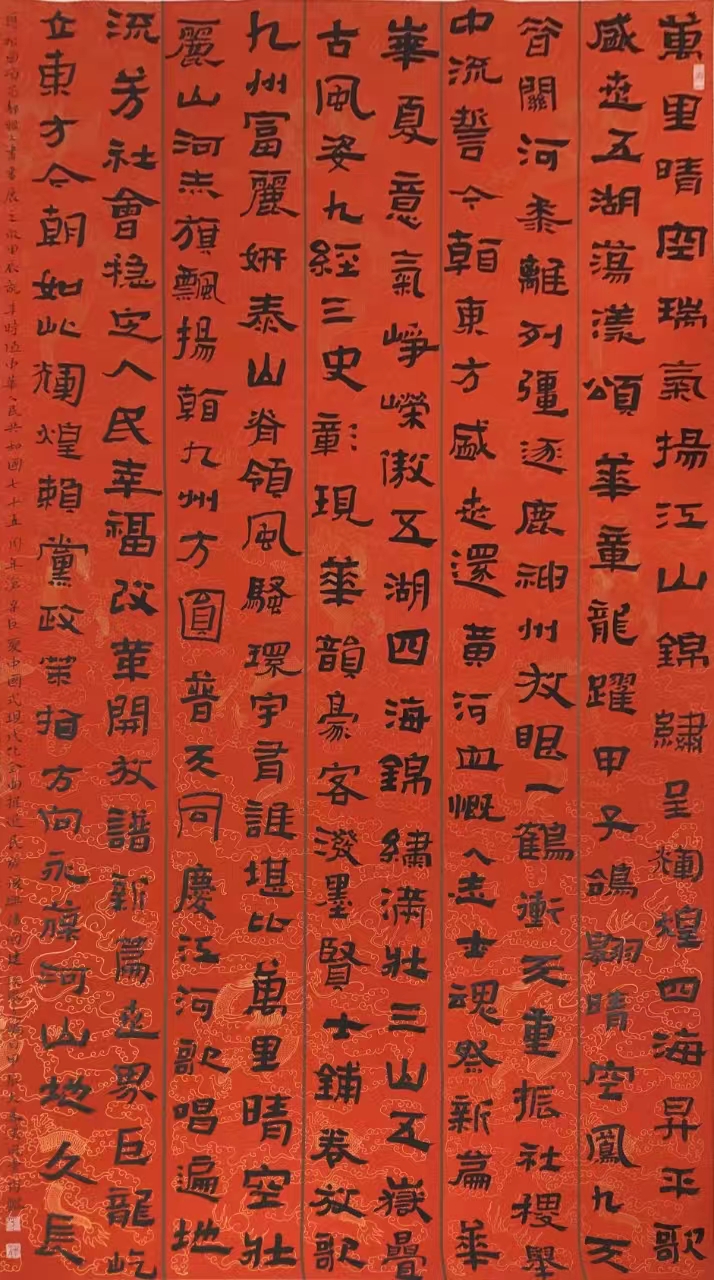 萬里晴空瑞氣揚江山錦繡呈輝煌四海昇平歌
盛世五湖蕩漾頌華章龍躍甲子鴿翱晴空鳳九天
昔關河黍離列疆逐鹿神州放眼一鶴衝天重振社稷舉
中流誓今朝東方盛世還黄河血慨人志士魂祭新篇華
華夏意氣崢嶸傲五湖四海錦繡满壯三山五嶽疊
古風姿九經三史彰現華韻豪客潑墨賢士鋪卷放歌
九州富麗妍泰山脊領風騷環宇看誰堪比萬里晴空壯
麗山河赤旗飄揚朝九州方圓普天同慶江河歌唱遍地
流芳社會穩定人民幸福改革開放譜新篇世界巨龍屹
立東方今朝如此輝煌賴黨政策指方向永葆河山地久長
時值中華人民共和國七十五周年中國式現代化全面推進民族